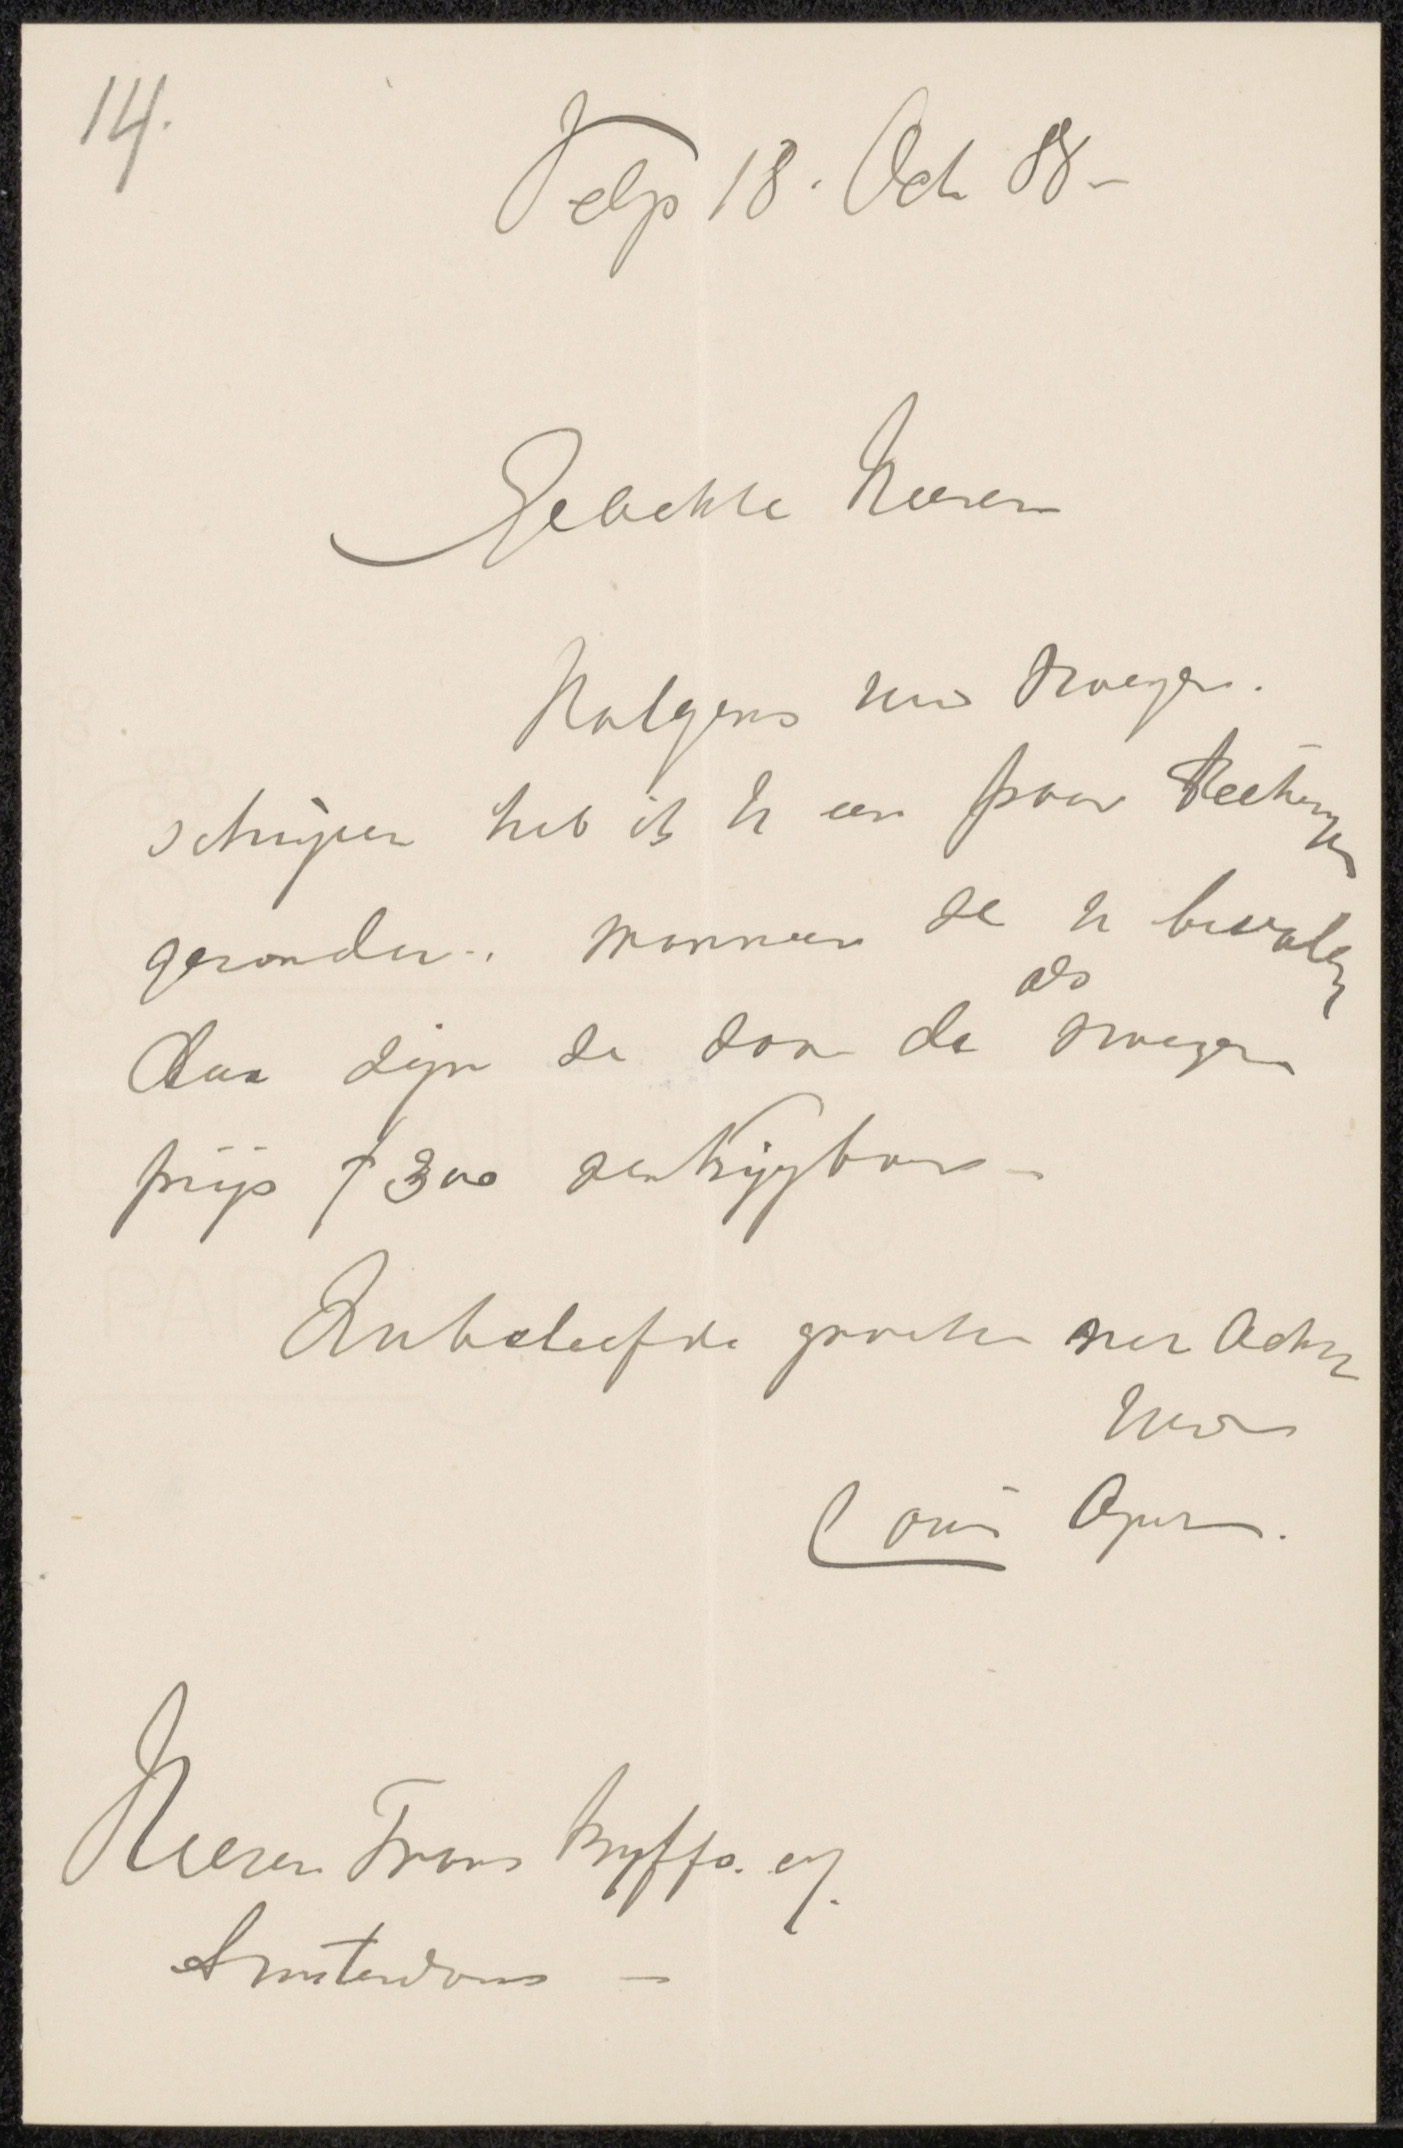 14.
Velp 18. Oct 88 -
Geachte Heeren
Volgens uw vroeger.
schrijven heb ik U een paar Teekeningen
gezonden. Wanneer ze U bevallen
als
dan zijn ze voor de vroeger
prijs ƒ 300 verkrijgbaar -
Beleefde groeten met Achtg
Louis Apol.
Heeren Frans Buffa. en
Amsterdam -